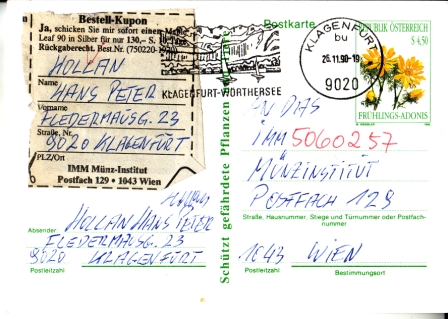 Bestell-Kupon
Ja, schicken Sie mir sofort einen Maple
Leaf 90 in Silber für nur 130,- S, 10 Tage
Rückgaberecht. Best.Nr. (750220-1020)
HOLLAN
Name
HANS PETER
Vorname
FLEDERMAUSG. 23
Straße, Nr.
9020 KLAGENFURT
PLZ/Ort
IMM Münz-Institut
Postfach 129 • 1043 Wien
HOLLAN HANS PETER
Absender
FLEDERMAUSG. 23
9020 KLAGENFURT
Postleitzahl
Schützt gefährdete Pflanzen
KLAGENFURT-WÖRTHERSEE
Postkarte
KLAGENFURT
bu
26.11.90-19
9020
REPUBLIK ÖSTERREICH
S 4,50
FRÜHLINGS-ADONIS
AN DAS
IMM 5060257
MÜNZINSTITUT
POSTFACH 129
Straße, Hausnummer, Stiege und Türnummer oder Postfach-
nummer
1043 WIEN
Postleitzahl Bestimmungsort